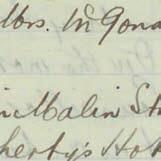 Mrs. McGona
Malin St
herty's Hot